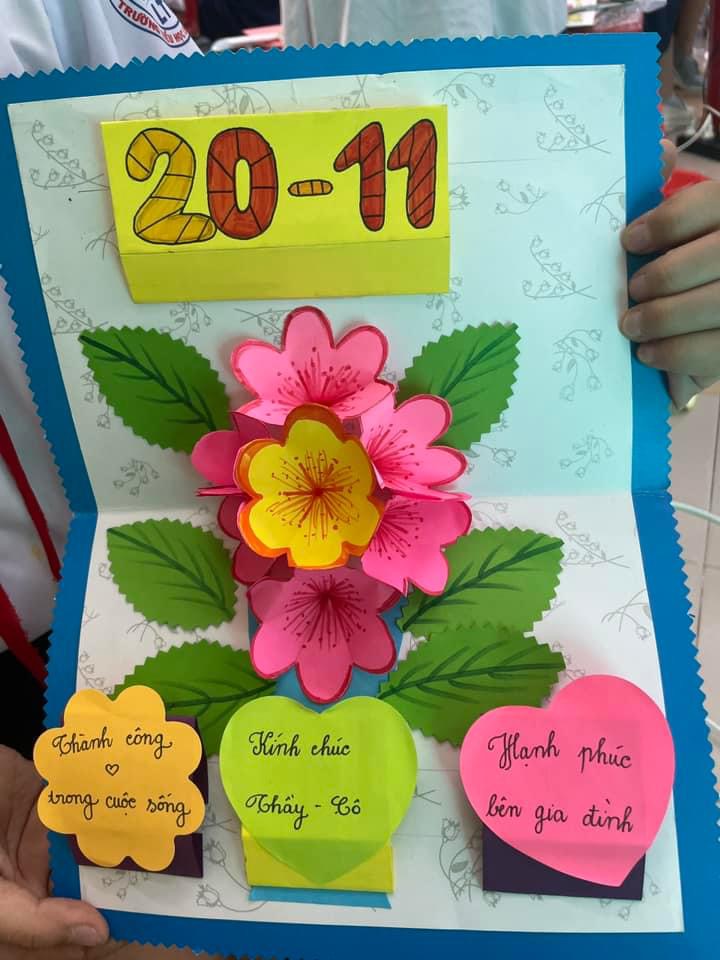 TRƯỜNG
20-11
Thành công
trong cuộc sống
Kính chúc
Thầy - Cô
Hạnh phúc
bên gia đình